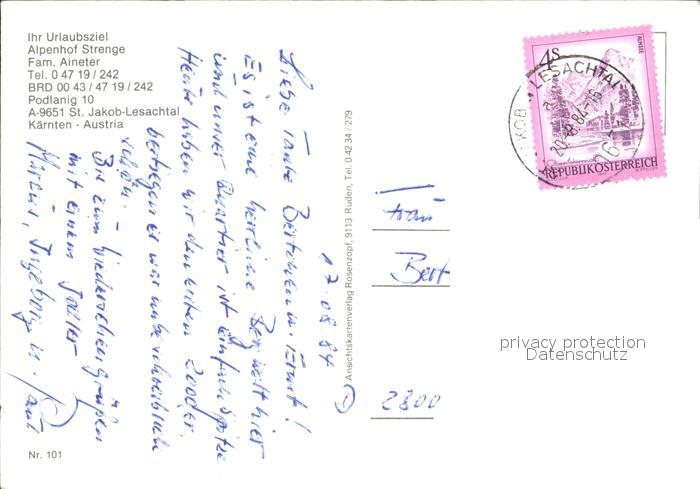 Ihr Urlaubsziel
Alpenhof Strenge
Fam. Aineter
Tel. 0 47 19 / 242
BRD 00 43 / 47 19 / 242
Podlanig 10
A-9651 St. Jakob-Lesachtal
Kärnten - Austria
17.08.84
Liebe Tante Bertchen u. Ernst!
Es ist eine herrliche Bergwelt hier
und unser Quartier ist einfach spitze
Heute haben wir den ersten 2000der
bestiegen es war unbeschreiblich
schön.
Bis zum Wiedersehen grüßen
mit einem Jodler
Markus, Ingeborg u. Paul
Nr. 101
Ansichtskartenverlag Rosenzopf, 9113 Ruden, Tel. 0 42 34 / 279
4S
ALMSEE
REPUBLIK ÖSTERREICH
JAKOB LESACHTAL
20.-8.84-16
Frau
Bert
D 2800
privacy protection
Datenschutz